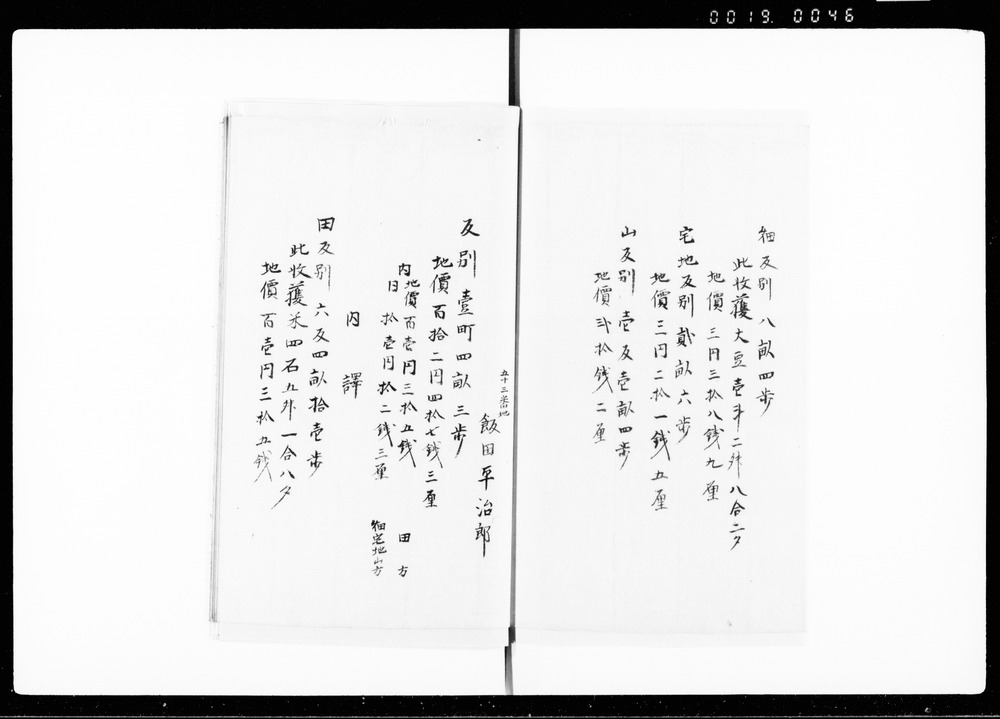 0019. 0046
畑反別 八畝四歩
此收獲大豆壱斗二升八合二夕
地價 三円三拾八銭九厘
宅地反別 貳畝六歩
地價 三円二拾一銭五厘
山反別 壱反壱畝四歩
地價 弐拾銭二厘
五十三番地
飯田平治郎
反別 壹町四畝三歩
地價 百拾二円四拾七銭三厘
内地價百壱円三拾五銭 田方
日 拾壱円拾二銭三厘 畑宅地山方
内譯
田反別 六反四畝拾壱歩
此收獲米四石九升一合八夕
地價 百壱円三拾五銭